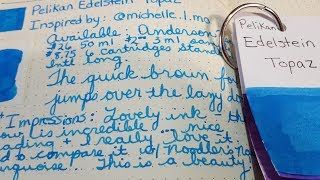 Pelikan Edelstein Topaz
Inspired by: @michelle.l.mo
Available: Anderson
$26, 50 ml $2 3 ml sam
6 cartridges stand
Intl long
The quick brown fo
jumps over the lazy do
* Impression: Lovely ink th
our is incredible nice
ading + I really love it
d to compare it w/ Noodlers
rquoise... This is a beauty
Pelikan
Edelstein
Topaz